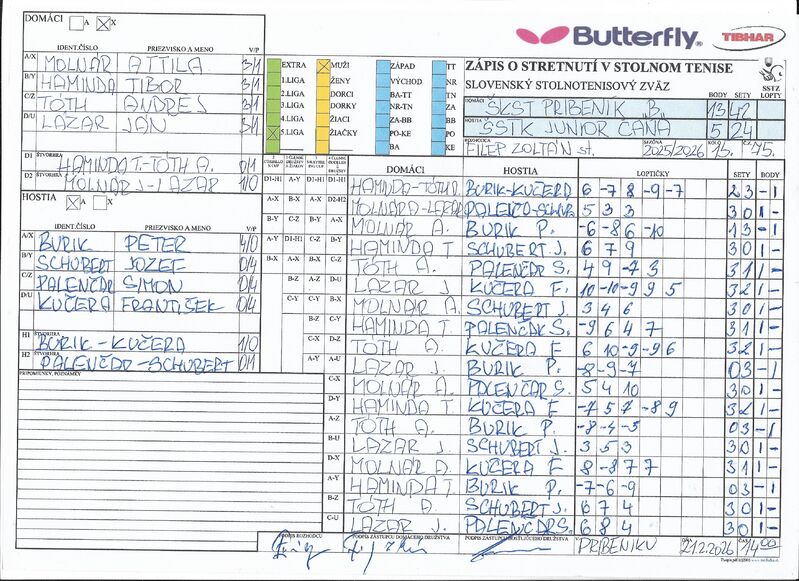 DOMÁCI A X
Butterfly
TIBHAR
IDENT.ČÍSLO PRIEZVISKO A MENO V/P
A/X MOLNÁR ATTILA 3/1
B/Y HAMINDA TIBOR 3/1
C/Z TÓTH ANDREJ 3/1
D/U LAZÁR JÁN 3/1
D1 ŠTVORHRA HAMINDA T.-TÓTH A. 0/1
D2 MOLNÁR J-LAZÁR 1/0
HOSTIA A X
IDENT.ČÍSLO PRIEZVISKO A MENO V/P
A/X BURIK PETER 4/0
B/Y SCHUBERT JOZEF 0/4
C/Z PALENČÁR SIMON 0/4
D/U KUČERA FRANTIŠEK 0/4
H1 ŠTVORHRA BURIK-KUČERA 1/0
H2 ŠTVORHRA PALENČÁR-SCHUBERT 0/1
PRIPOMIENKY, POZNÁMKY
EXTRA MUŽI ZÁPAD TT
1.LIGA ŽENY VÝCHOD NR
2.LIGA DORCI BA-TT TN
3.LIGA DORKY NR-TN ZA
4.LIGA ŽIACI ZA-BB BB
5.LIGA ŽIAČKY PO-KE PO
BA KE
ZÁPIS O STRETNUTÍ V STOLNOM TENISE
SLOVENSKÝ STOLNOTENISOVÝ ZVÄZ
SSTZ
BODY SETY LOPTY
DOMÁCI ŠKST PRIBENÍK "B" 13 42
HOSTIA ŠSTK JUNIOR ČAŇA 5 24
ROZHODCA FILEP ZOLTÁN st. SEZÓNA 2025/2026 KOLO 15. Č. 75.
DOMÁCI HOSTIA LOPTIČKY SETY BODY
D1-H1 A-Y D1-H1 D1-H1 HAMINDA-TÓTH A. BURIK-KUČERA 6 -7 8 -9 -7 2 3 - 1
A-X B-X A-X D2-H2 MOLNÁR A-LAZÁR PALENČÁR-SCHUB. 5 3 3 3 0 1 -
B-Y C-Z B-Y A-X MOLNÁR A. BURIK P. -6 -8 6 -10 1 3 - 1
A-Y D1-H1 C-Z B-Y HAMINDA T. SCHUBERT J. 6 7 9 3 0 1 -
B-X A-X B-X C-Z TÓTH A. PALENČÁR S. 4 9 -7 3 3 1 1 -
B-Z A-Z D-U LAZÁR J. KUČERA F. 10 -10 -9 9 5 3 2 1 -
C-Y C-Y B-X MOLNÁR A. SCHUBERT J. 3 4 6 3 0 1 -
B-Z C-Y HAMINDA T. PALENČÁK S. -9 6 4 7 3 1 1 -
C-X D-Z TÓTH A. KUČERA F. 6 10 -9 -9 6 3 2 1 -
A-Y A-U LAZÁR J. BURIK P. -8 -9 -7 0 3 - 1
C-X MOLNÁR A. PALENČÁR S. 5 4 10 3 0 1 -
D-Y HAMINDA T. KUČERA F. -7 5 7 -8 9 3 2 1 -
A-Z TÓTH A. BURIK P. -8 -4 -5 0 3 - 1
B-U LAZÁR J. SCHUBERT J. 3 5 3 3 0 1 -
D-X MOLNÁR A. KUČERA F. 8 -8 7 7 3 1 1 -
A-Y HAMINDA T. BURIK P. -7 -6 -9 0 3 - 1
B-Z TÓTH A. SCHUBERT J. 6 7 4 3 0 1 -
C-U LAZÁR J. PALENČÁR S. 6 8 4 3 0 1 -
PODPIS ROZHODCU PODPIS ZÁSTUPCU DOMÁCEHO DRUŽSTVA PODPIS ZÁSTUPCU HOSŤUJÚCEHO DRUŽSTVA V PRIBENÍKU DŇA 21.2.2026 ČAS 14:00